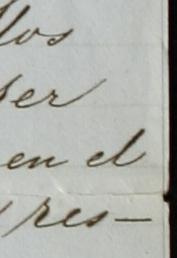 los
ser
en el
y res—